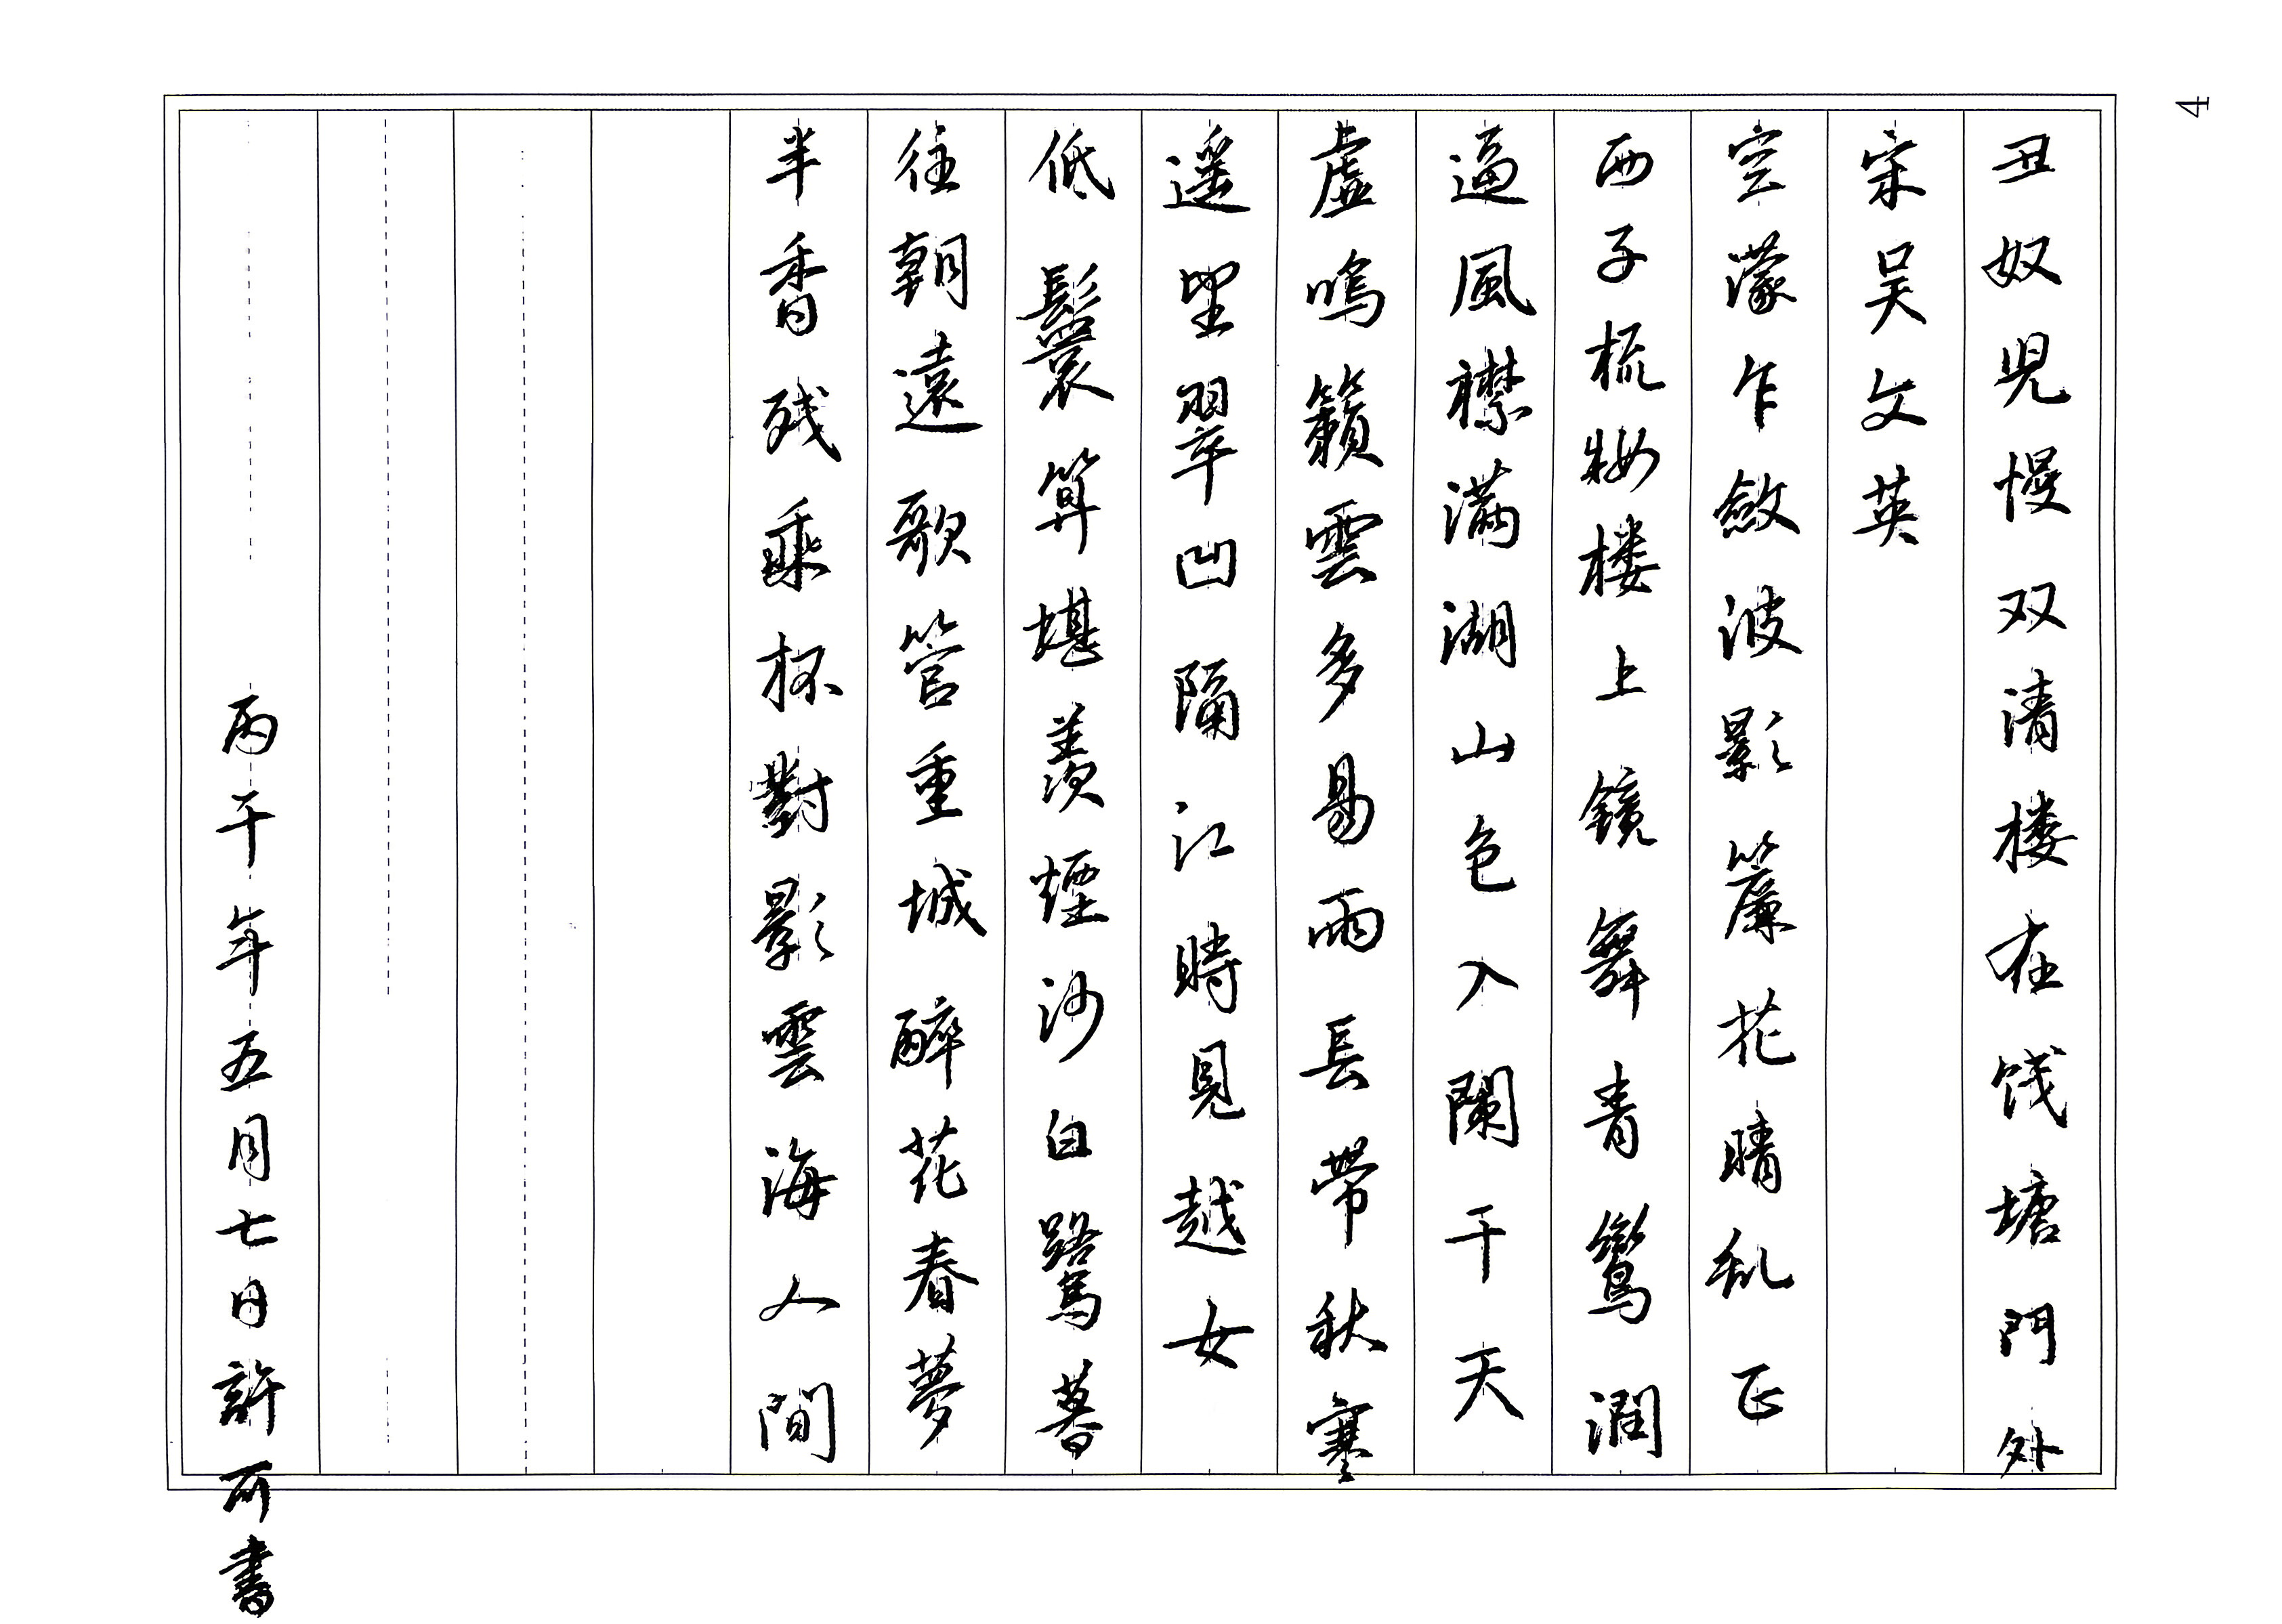 4
丑奴児慢双清楼在钱塘門外
宋吴文英
空濛乍斂波影簾花晴乱正
西子梳妝楼上鏡舞青鸞潤
逼風襟滿湖山色入闌干天
虛鳴籟雲多易雨長帶秋寒
遥望翠凹隔江時見越女
低鬟算堪羨煙沙白鷺暮
往朝遠歌管重城醉花春夢
半香残乘杯對影雲海人間
丙午年五月七日許所書